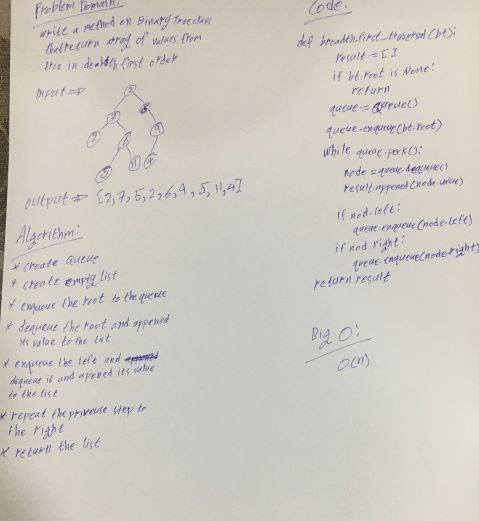 Problem Domain:
write a method on Binary Tree class
that return array of values from
tree in first order
input =>
output => [2,7,5,2,6,9,5,11,4]
Algorithm:
* create queue
* create empty list
* enqueue the root to the queue
* dequeue the root and append
its value to the list
* enqueue the left and
dequeue it and apened its value
to the list
* repeat the step to
the right
* return the list
Code:
def breadth_first_traversal(bt):
result = []
if bt.root is None:
return
queue = Queue()
queue.enqueue(bt.root)
while queue.peek():
node = queue.dequeue()
result.append(node.value)
if nod.left:
queue.enqueue(node.left)
if nod.right:
queue.enqueue(node.right)
return result
Big O:
O(n)